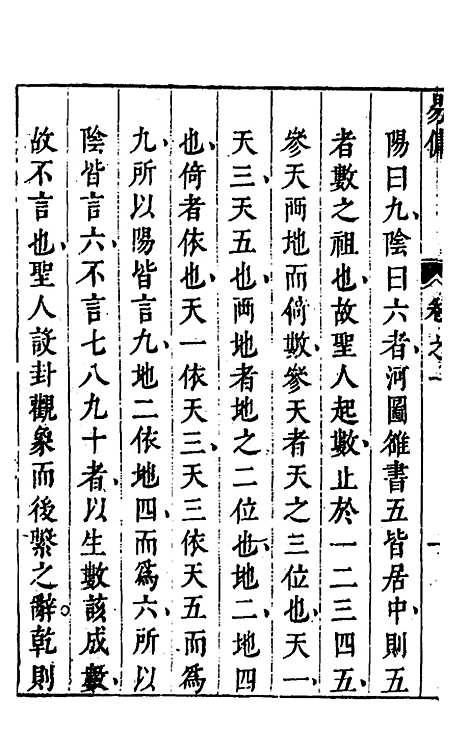 易傭 卷之一 一
陽曰九、陰曰六者、河圖雒書五皆居中、則五
者數之祖也、故聖人起數、止於一二三四五、
參天兩地而倚數、參天者天之三位也、天一
天三天五也、兩地者地之二位也、地二地四
也、倚者依也、天一依天三、天三依天五而爲
九、所以陽皆言九、地二依地四、而爲六、所以
陰皆言六、不言七八九十者、以生數該成數、
故不言也、聖人設卦觀象而後繫之辭。乾則